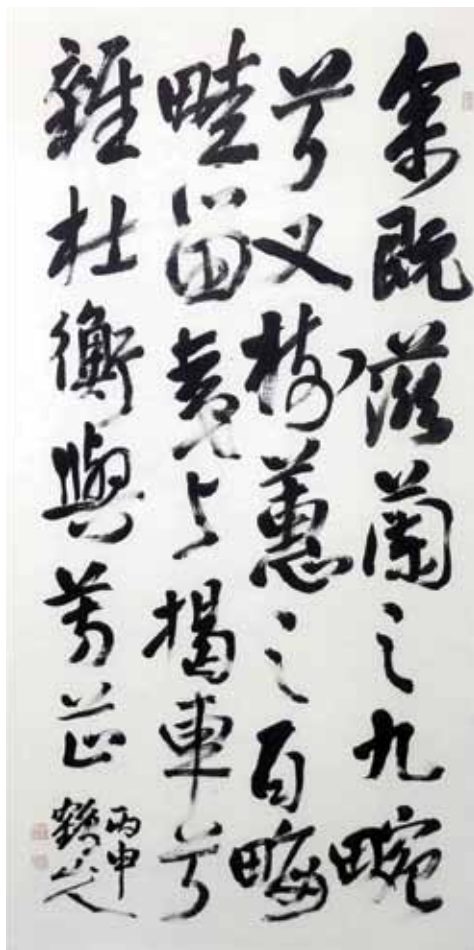 余既滋蘭之九畹
兮又樹蕙之百畮
畦留夷与揭車兮
雜杜衡與芳芷
丙申